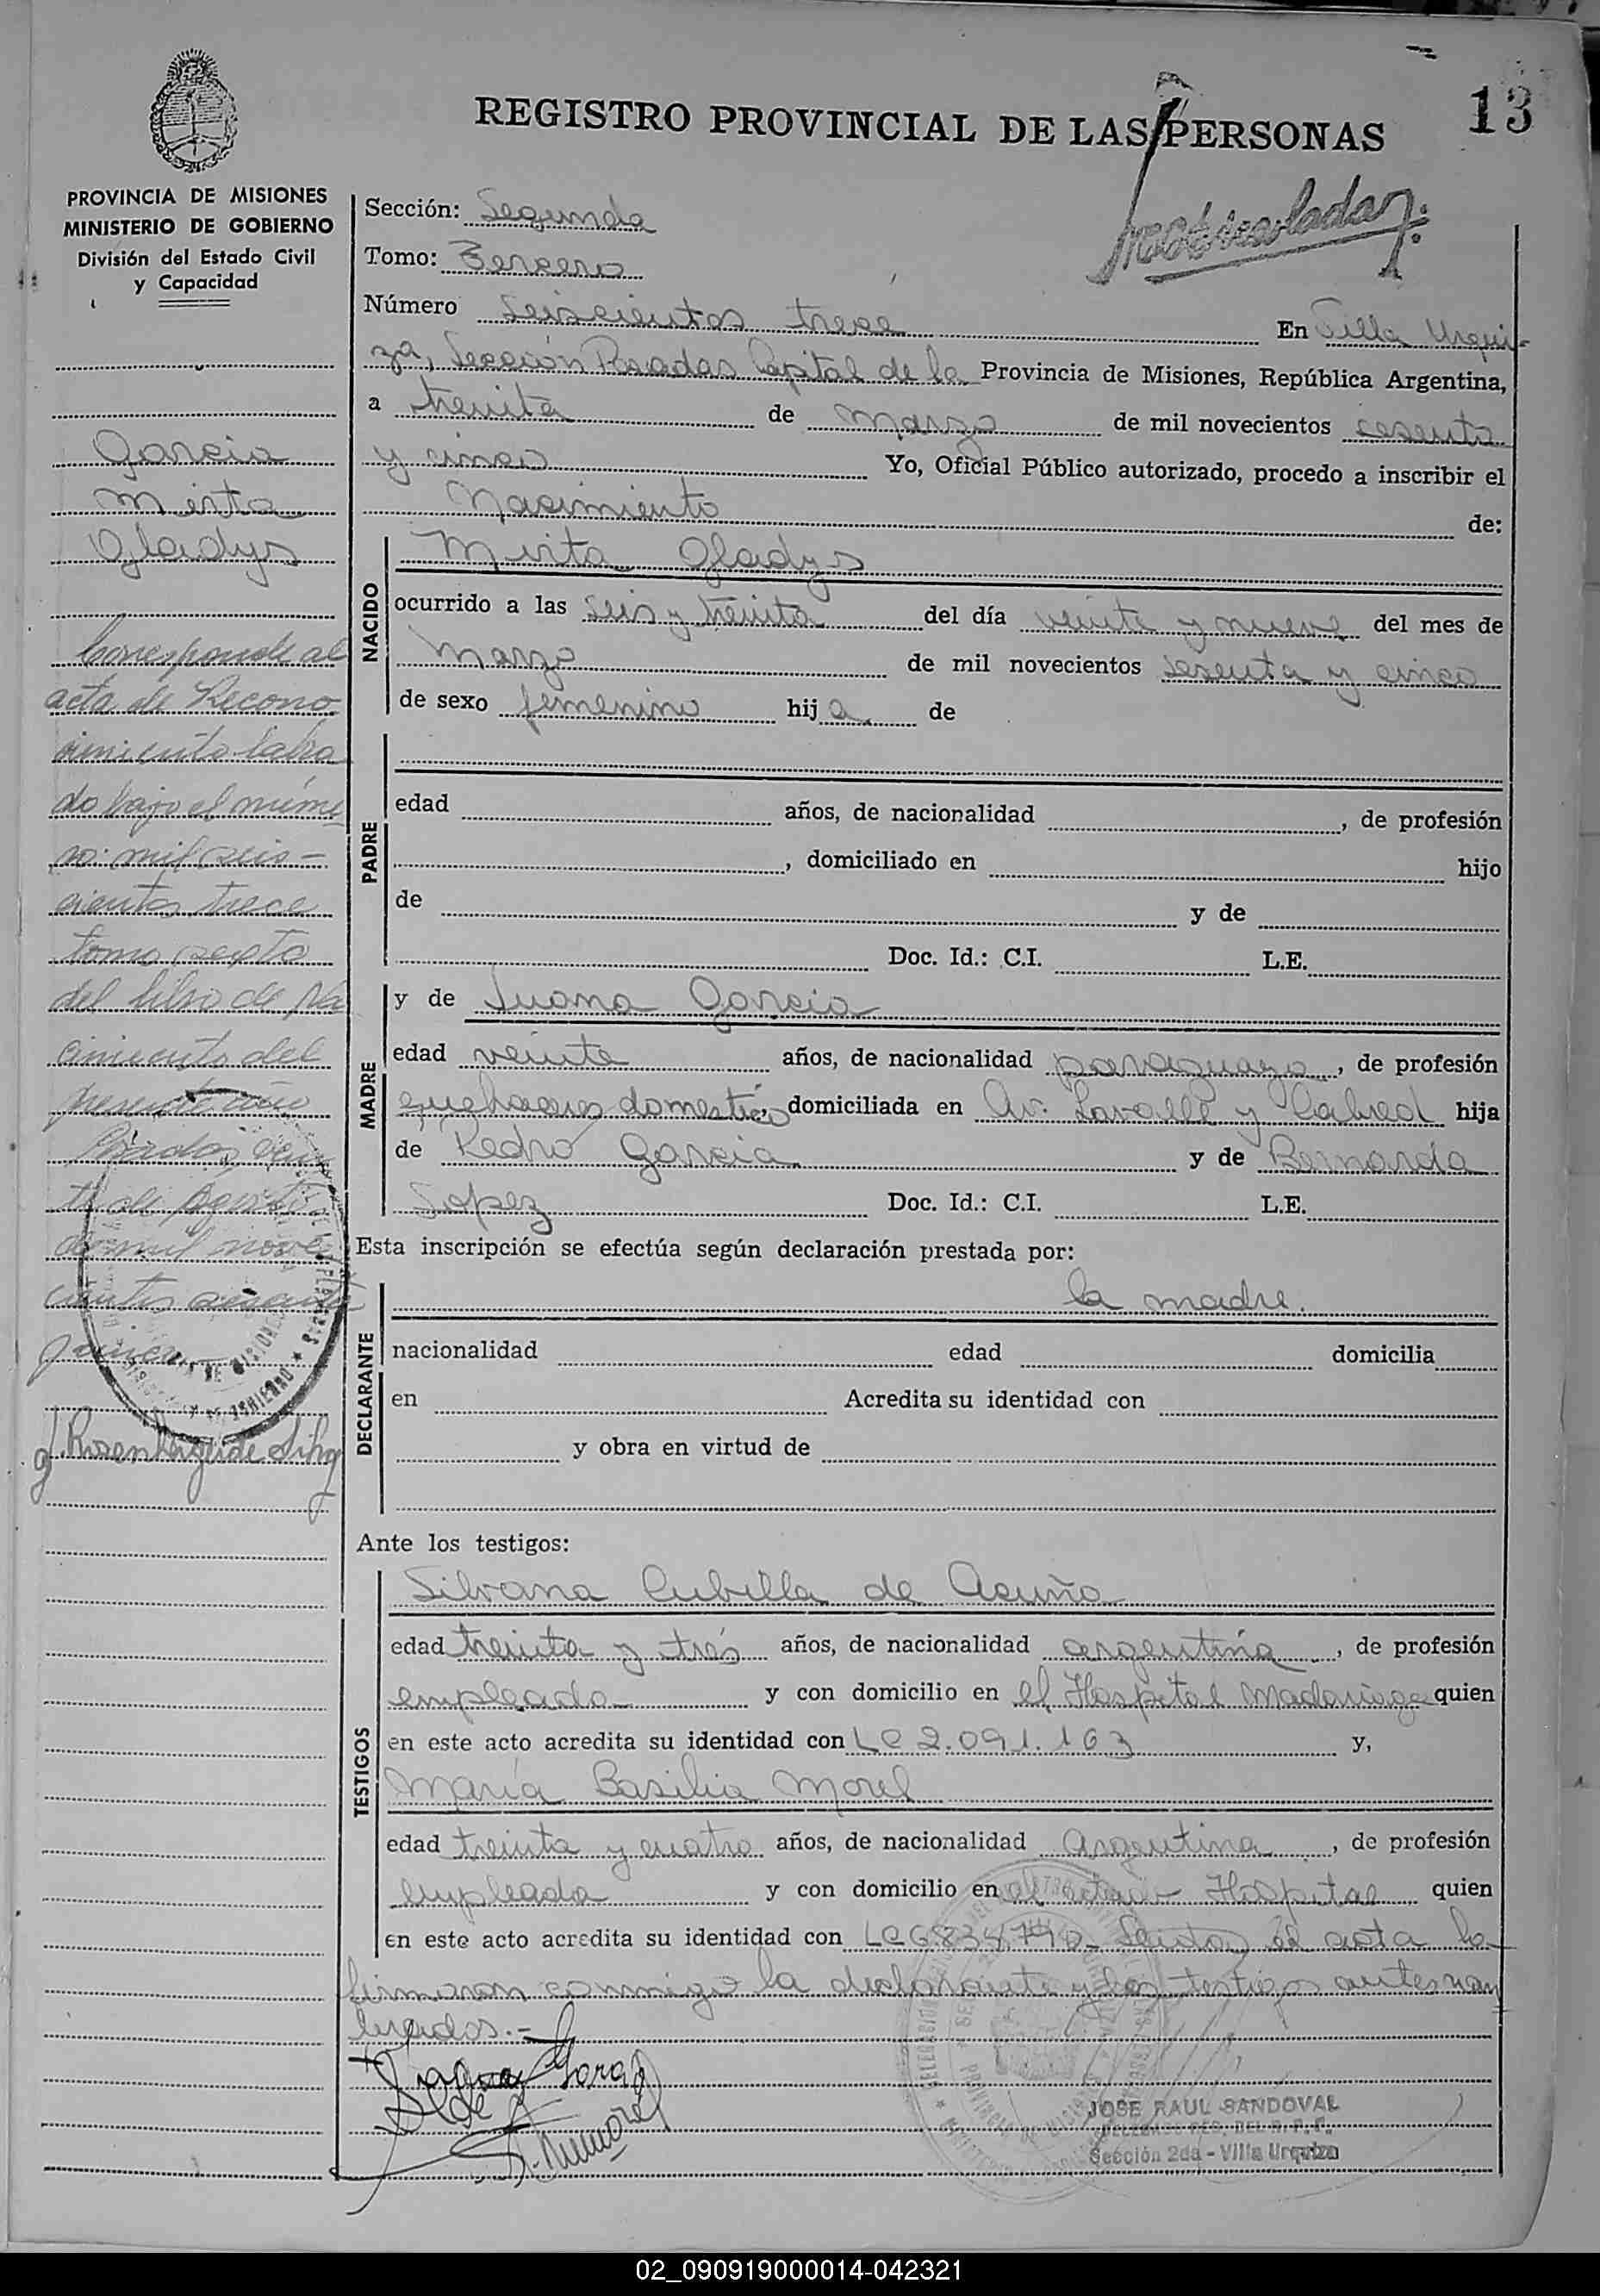 13
REGISTRO PROVINCIAL DE LAS PERSONAS
Matriculada
PROVINCIA DE MISIONES
MINISTERIO DE GOBIERNO
División del Estado Civil
y Capacidad
Garcia
Mirta
Gladys
Corresponde al
acta de Recono
cimiento labra
do bajo el núme
ro: mil seis-
cientos trece
tomo sexto
del libro de Na
cimiento del
presente año
Posadas, vein
te de Agosto
de mil nove
cientos sesenta
Sección: Segunda
Tomo: Tercero
Número Seiscientos trece En Villa Urqui-
za, Sección Posadas Capital de la Provincia de Misiones, República Argentina,
a treinta de marzo de mil novecientos sesenta
y cinco Yo, Oficial Público autorizado, procedo a inscribir el
Nacimiento de:
NACIDO
Mirta Gladys
ocurrido a las seis y treinta del día veinte y nueve del mes de
marzo de mil novecientos sesenta y cinco
de sexo femenino hija de
PADRE
edad años, de nacionalidad , de profesión
, domiciliado en hijo
de y de
Doc. Id.: C.I. L.E.
MADRE
y de Juana Garcia
edad veinte años, de nacionalidad paraguaya, de profesión
quehaceres domestico domiciliada en Av. Lavalle y Cabred hija
de Pedro Garcia y de Bernarda
Lopez Doc. Id.: C.I. L.E.
Esta inscripción se efectúa según declaración prestada por:
la madre.
DECLARANTE
nacionalidad edad domicilia
en Acredita su identidad con
y obra en virtud de
Ante los testigos:
TESTIGOS
Silvana Cubilla de Acuña
edad treinta y tres años, de nacionalidad argentina, de profesión
empleada y con domicilio en el Hospital Madariaga quien
en este acto acredita su identidad con LC 2.091.163 y,
María Basilia Morel
edad treinta y cuatro años, de nacionalidad Argentina, de profesión
empleada y con domicilio en el Hospital quien
en este acto acredita su identidad con LC Leida el acta la
firmaron conmigo la declarante y los testigos antes nom
brados.-
JOSE RAUL SANDOVAL
Sección 2da - Villa Urquiza
02_090919000014-042321